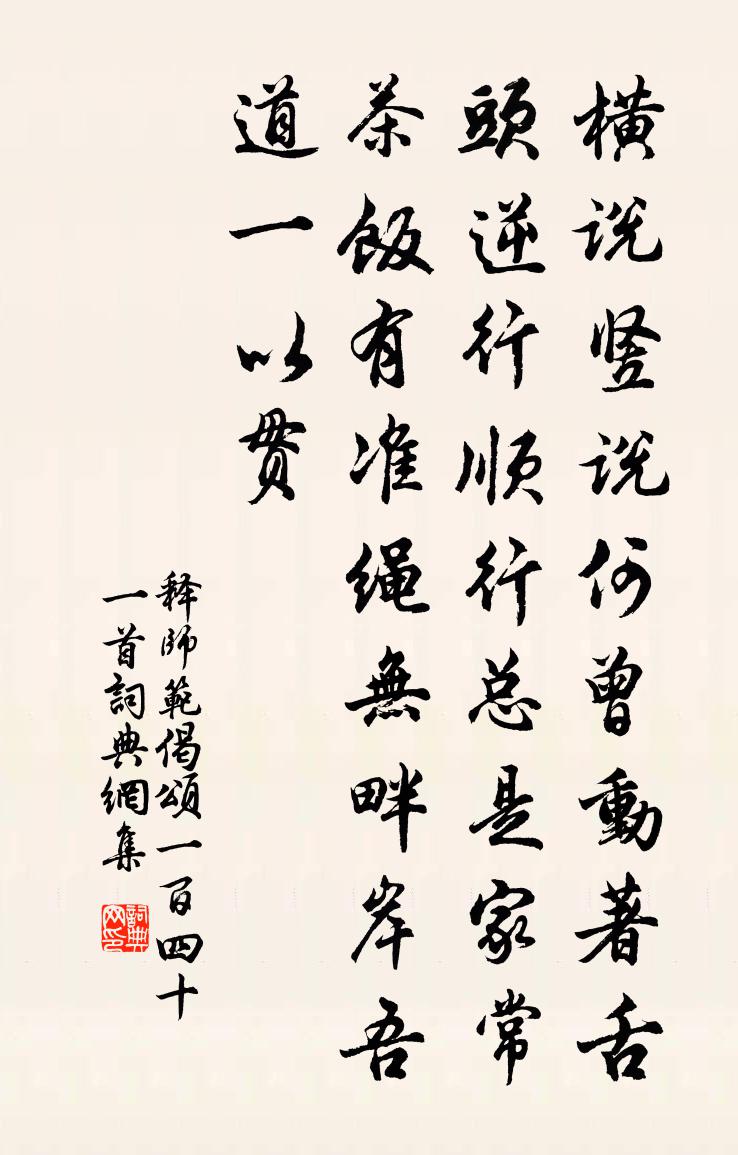 横说竖说何曾動著舌
頭逆行顺行总是家常
茶飯有准绳無畔岸吾
道一以贯
释師範偈頌一百四十
一首詞典網集
詞典网印